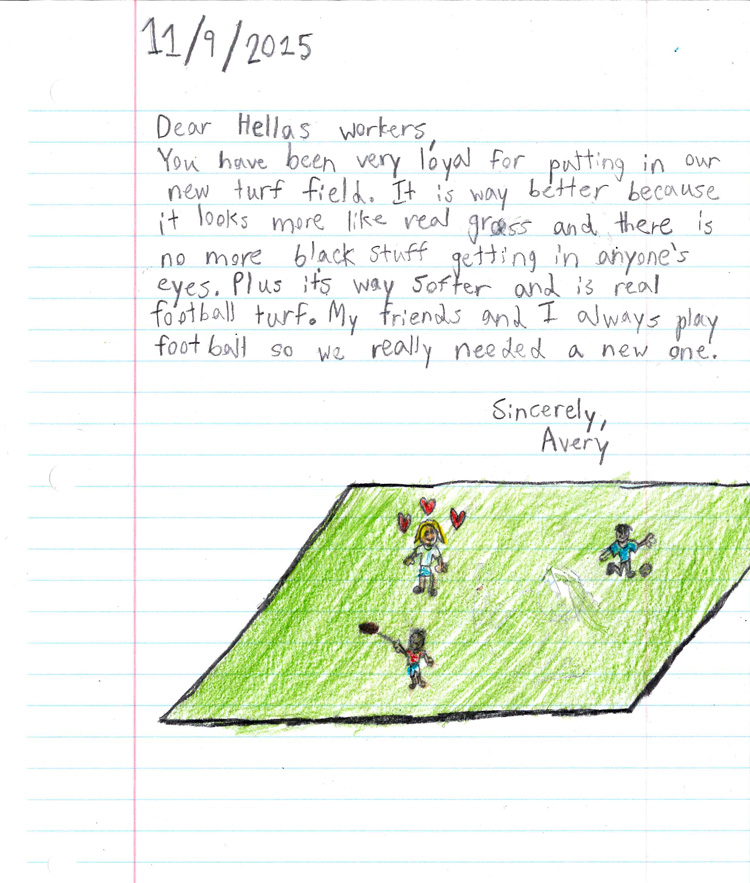 11/9/2015
Dear Hellas workers,
You have been very loyal for putting in our
new turf field. It is way better because
it looks more like real grass and there is
no more black stuff getting in anyone's
eyes. Plus it's way softer and is real
football turf. My friends and I always play
football so we really needed a new one.
Sincerely,
Avery